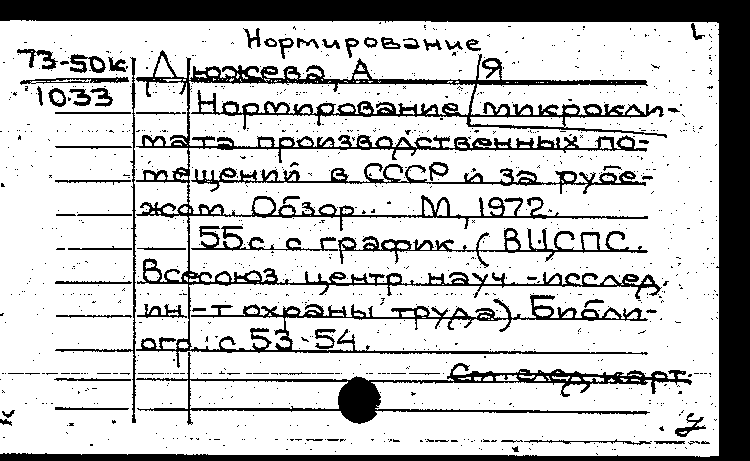 Нормирование
73-50к Дюжева, А Я
1033 Нормирование микрокли-
мата производственных по-
мещений в СССР и за рубе-
жом. Обзор.. М., 1972.
55с. с график. (ВЦСПС.
Всесоюз. центр. науч.-исслед.
ин-т охраны труда). Библи-
огр.: с. 53-54.
См. след. карт.